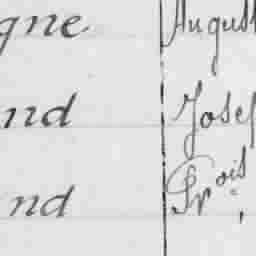 gne August
nd Josep
nd Frois,